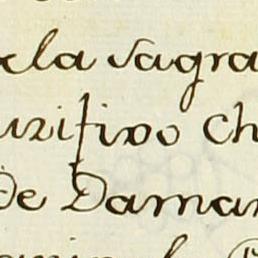 ela sagra
urifivo Ch
De Daman